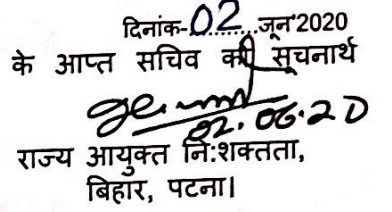 दिनांक-02 जून'2020
के आप्त सचिव की सूचनार्थ
02.06.20
राज्य आयुक्त नि:शक्तता,
बिहार, पटना।